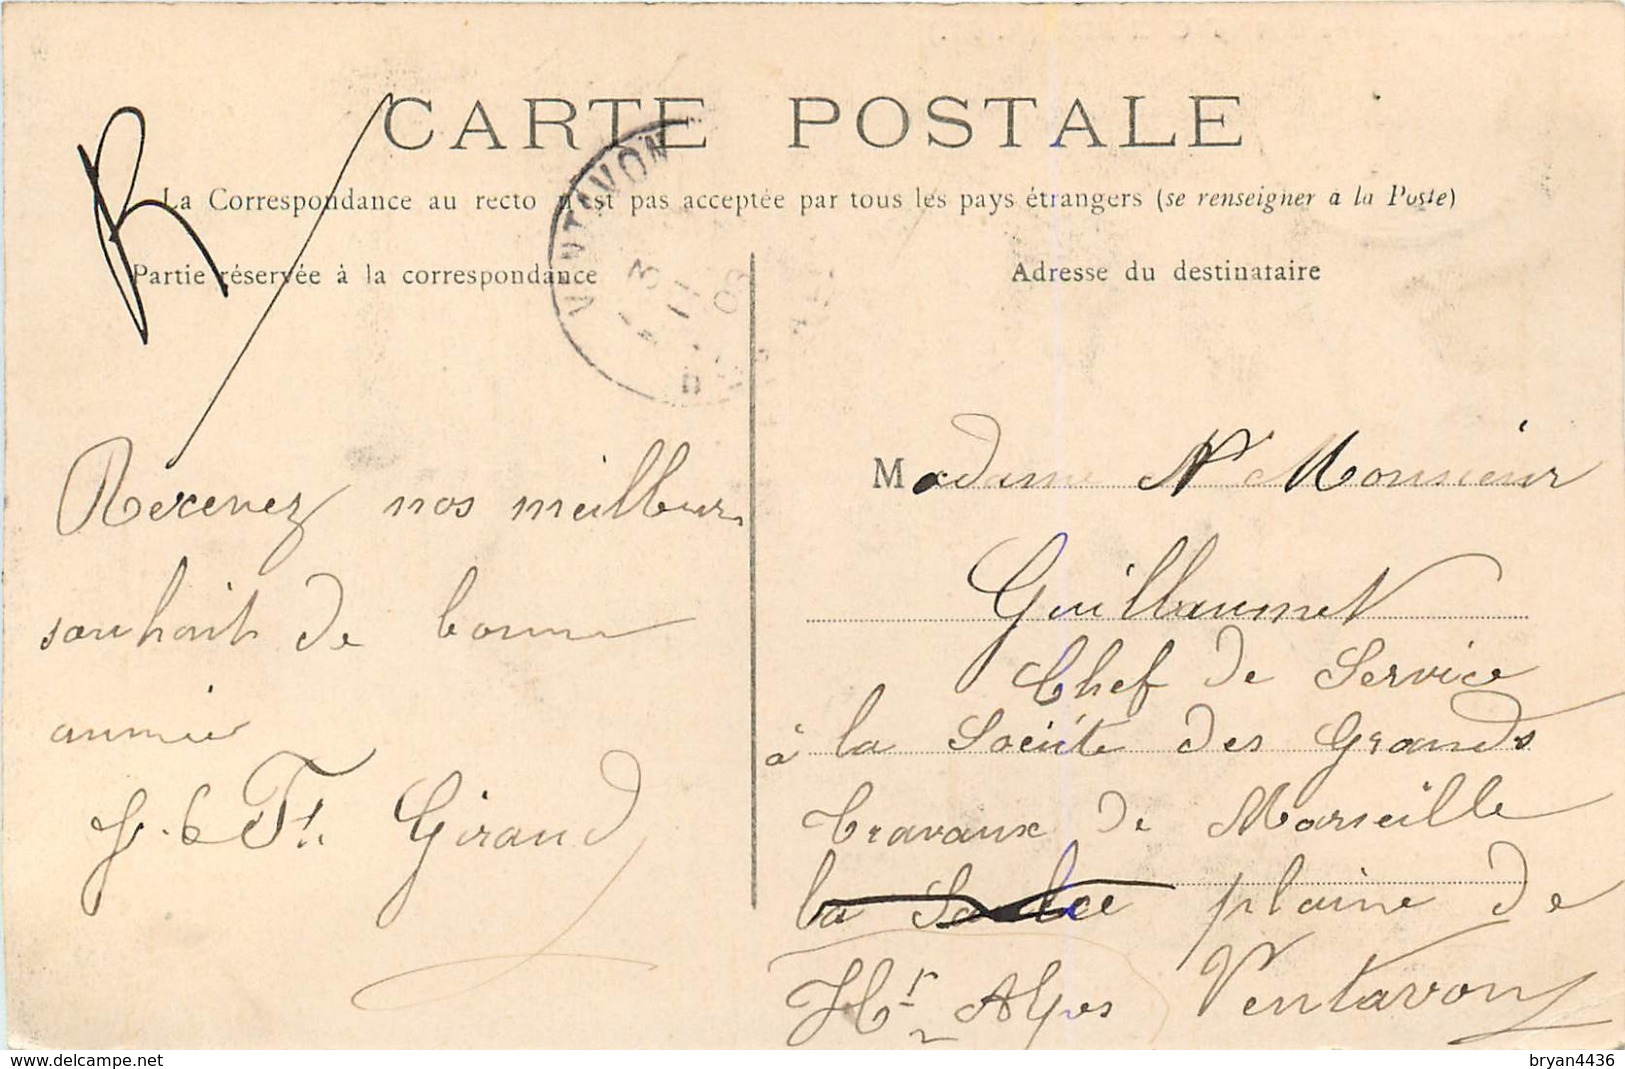 CARTE POSTALE
La Correspondance au recto n'est pas acceptée par tous les pays étrangers (se renseigner à la Poste)
Partie réservée à la correspondance
Adresse du destinataire
VENTAVON
3
11
05
R
Recevez nos meilleurs
souhait de bonne
année
Ft. Giraud
Madame & Monsieur
Guillaumet
Chef de Service
à la Société des Grands
travaux de Marseille
la Saulce plaine de
Htes Alpes Ventavon
delcampe.net
bryan4436